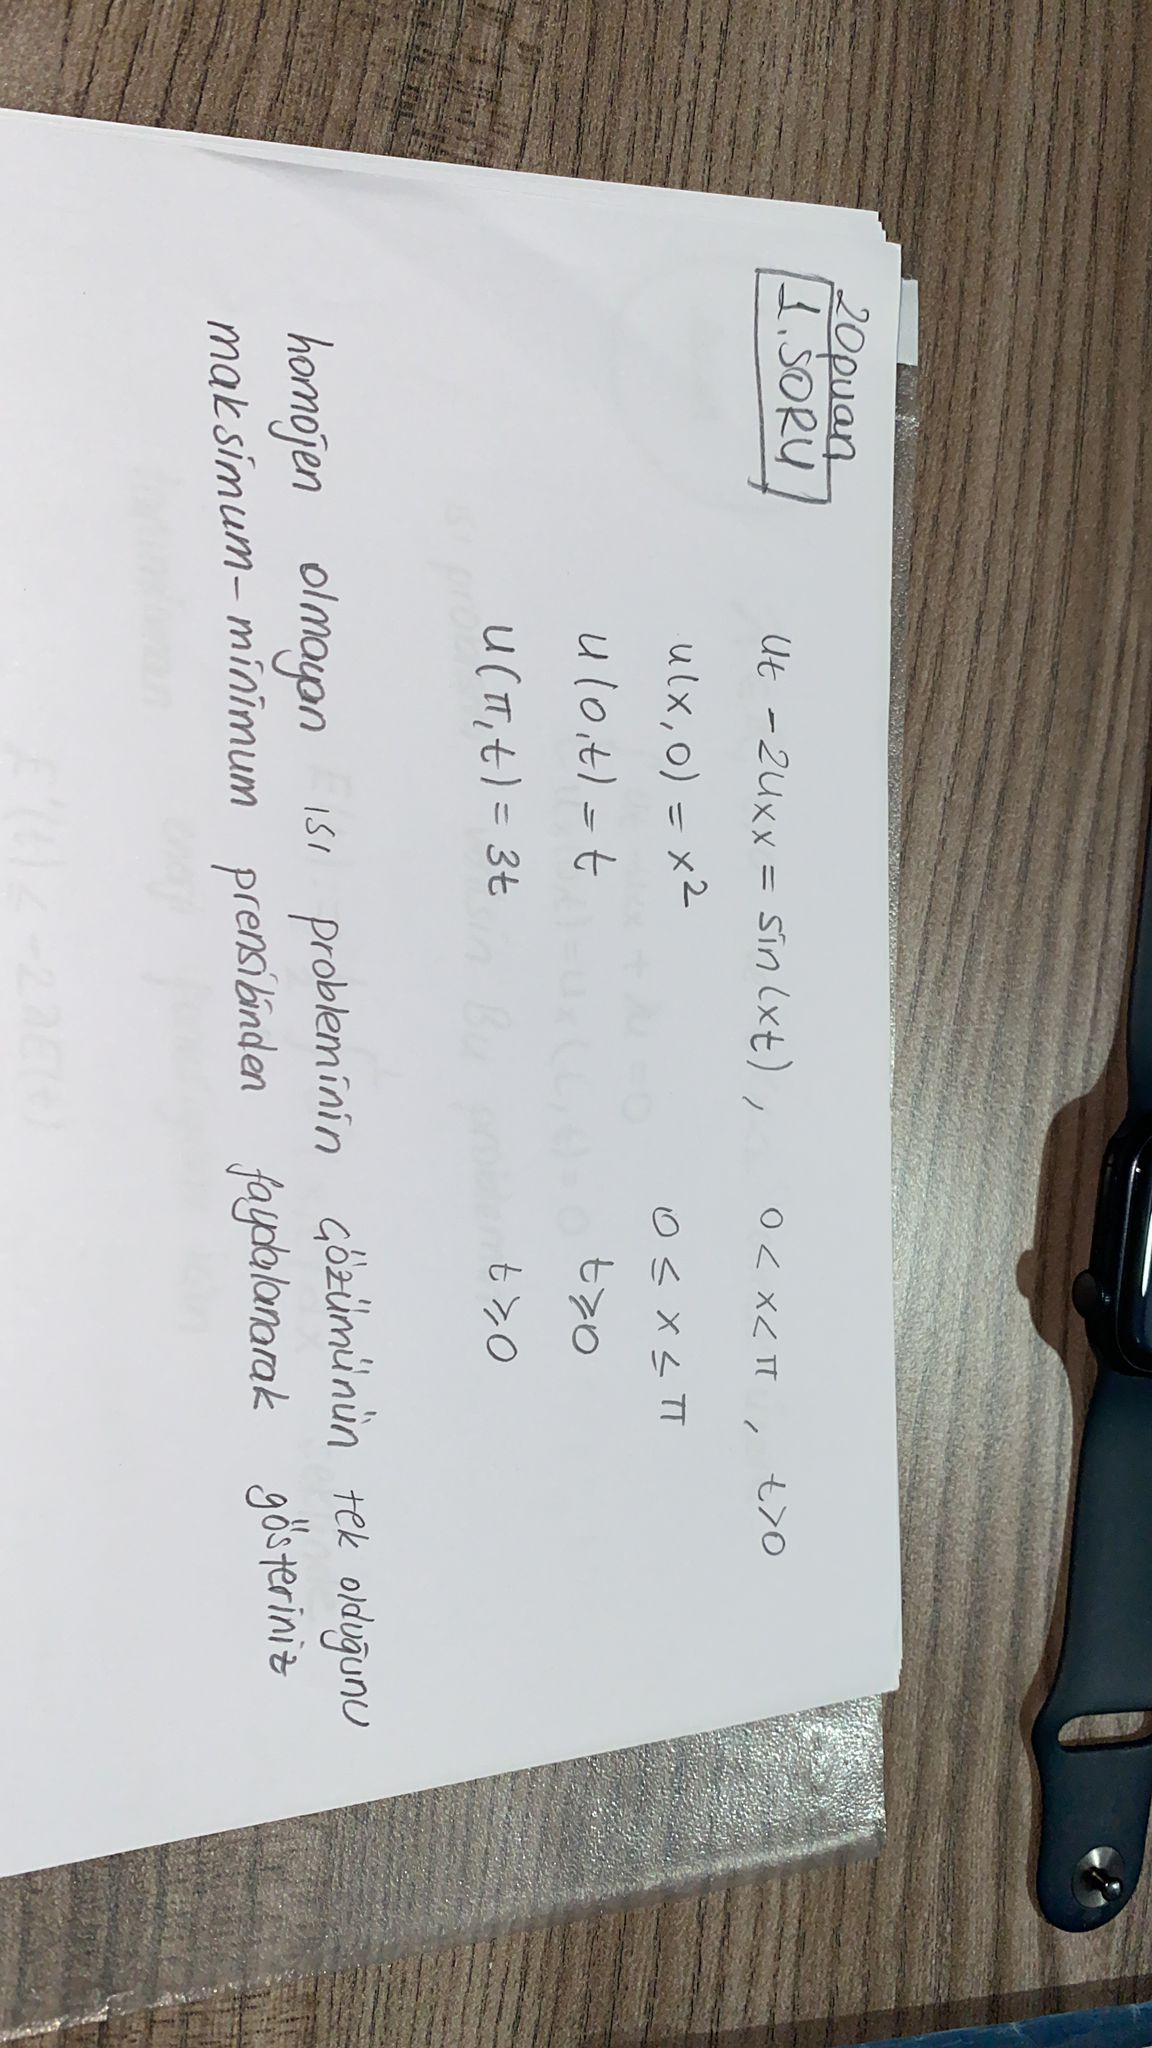 20puan
1.SORU
ut - 2uxx = sin(xt), 0 < x < π, t>0
u(x,0) = x² 0 ≤ x ≤ π
u(0,t) = t t≥0
u(π,t) = 3t t≥0
homojen olmayan ısı probleminin çözümünün tek olduğunu
maksimum-minimum prensibinden faydalanarak gösteriniz